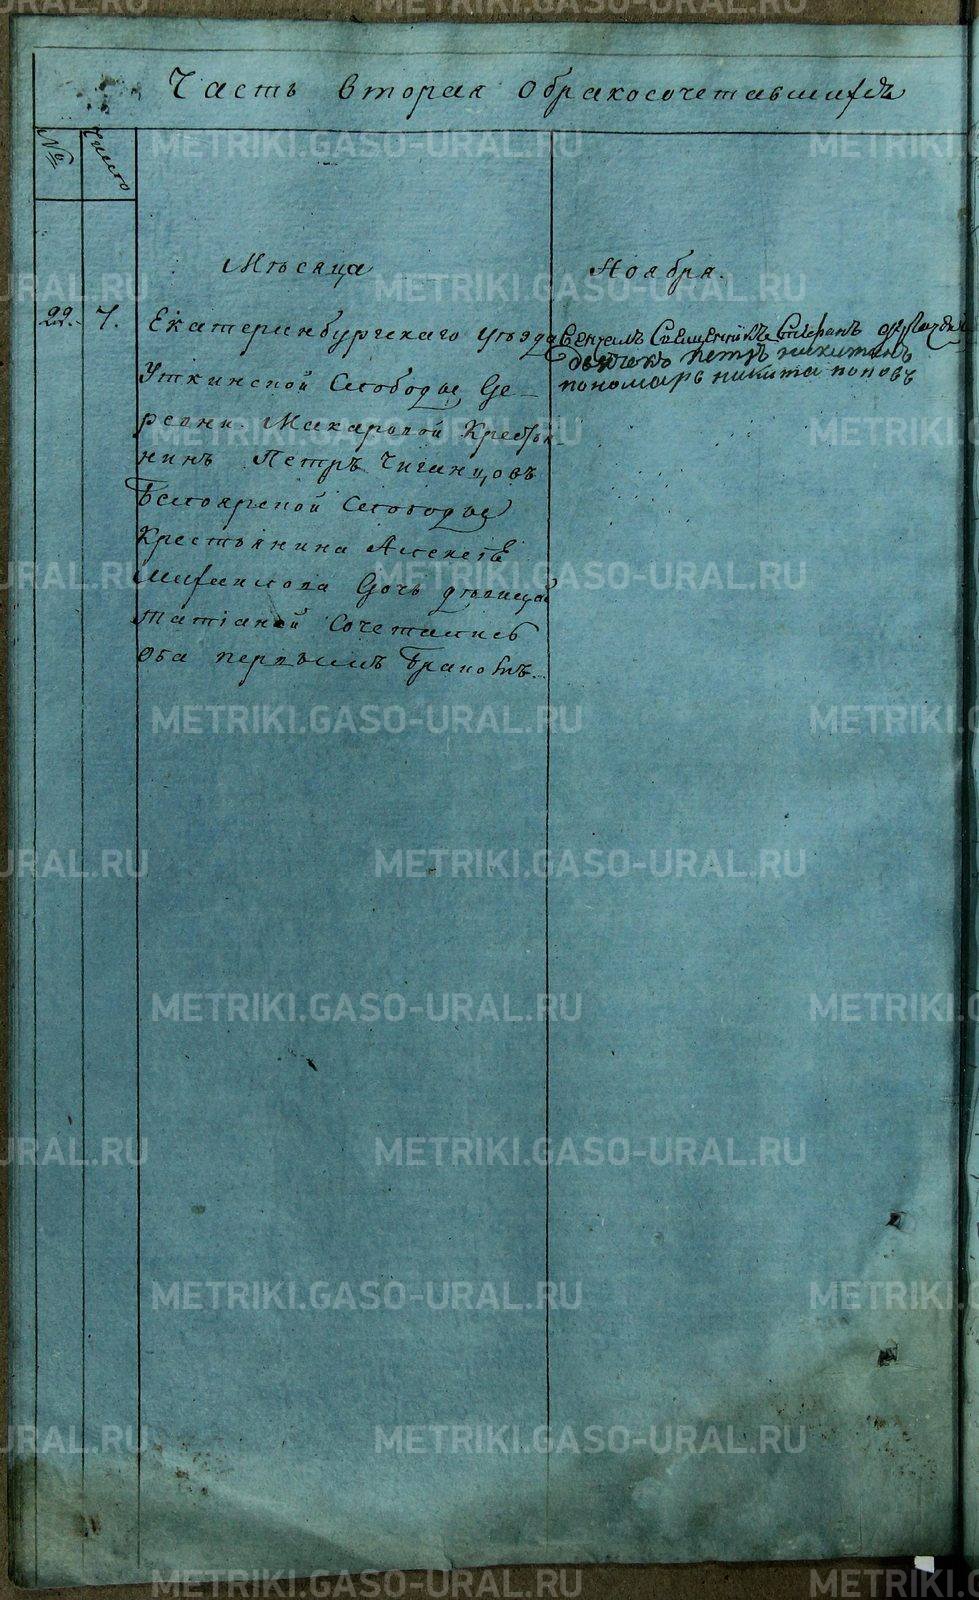 Часть вторая о бракосочетавшихъ
№
число
Мѣсяца Ноября.
22. 7. Екатеринбургскаго уѣзда
Уткинской Слободы де-
ревни Макаровой Крестья
нинъ Петръ Чиганцовъ
Белоярской Слободы
Крестьянина Алексеѣ
дочь девицей
татіаной Сочетались
оба первымъ бракомъ.
Венчалъ Священникъ Стефанъ
дьячекъ петръ никитинъ
пономарь никита поповъ
METRIKI.GASO-URAL.RU